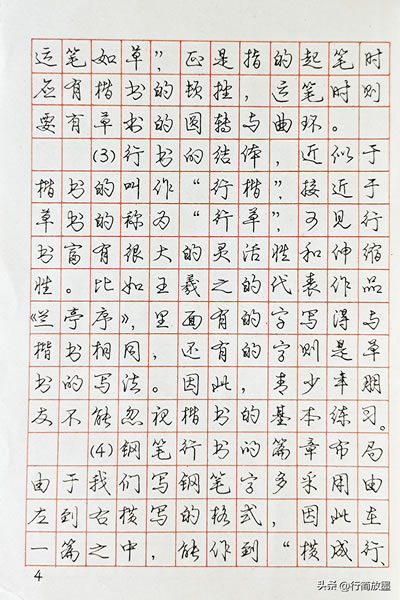 运笔如草”，正是指的起笔时
应有楷书的顿挫，运笔时则
要有草书的圆转与曲环。
(3)行书的结体，近似于
楷书的叫作“行楷”，接近于
草书的称为“行草”，可见行
书富有很大的灵活性和伸缩
性。比如王羲之的代表作品
《兰亭序》，里面有的字写得与
楷书相同，还有的字则是草
书的写法。因此，青少年朋
友不能忽视楷书的基本练习。
(4)钢笔行书的篇章布局
由于我们写钢笔字多采用由
左到右横写的格式，因此在
一篇之中，能作到“横成行、
4
头条@行简放墨